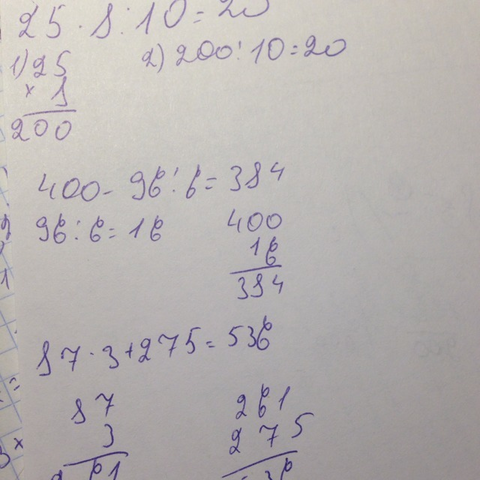 25 · 8 : 10 = 20
1) 25
2) 200 : 10 = 20
× 8
200
400 - 96 : 6 = 384
96 : 6 = 16
400
16
384
87 · 3 + 275 = 536
87
3
261
261
275
536